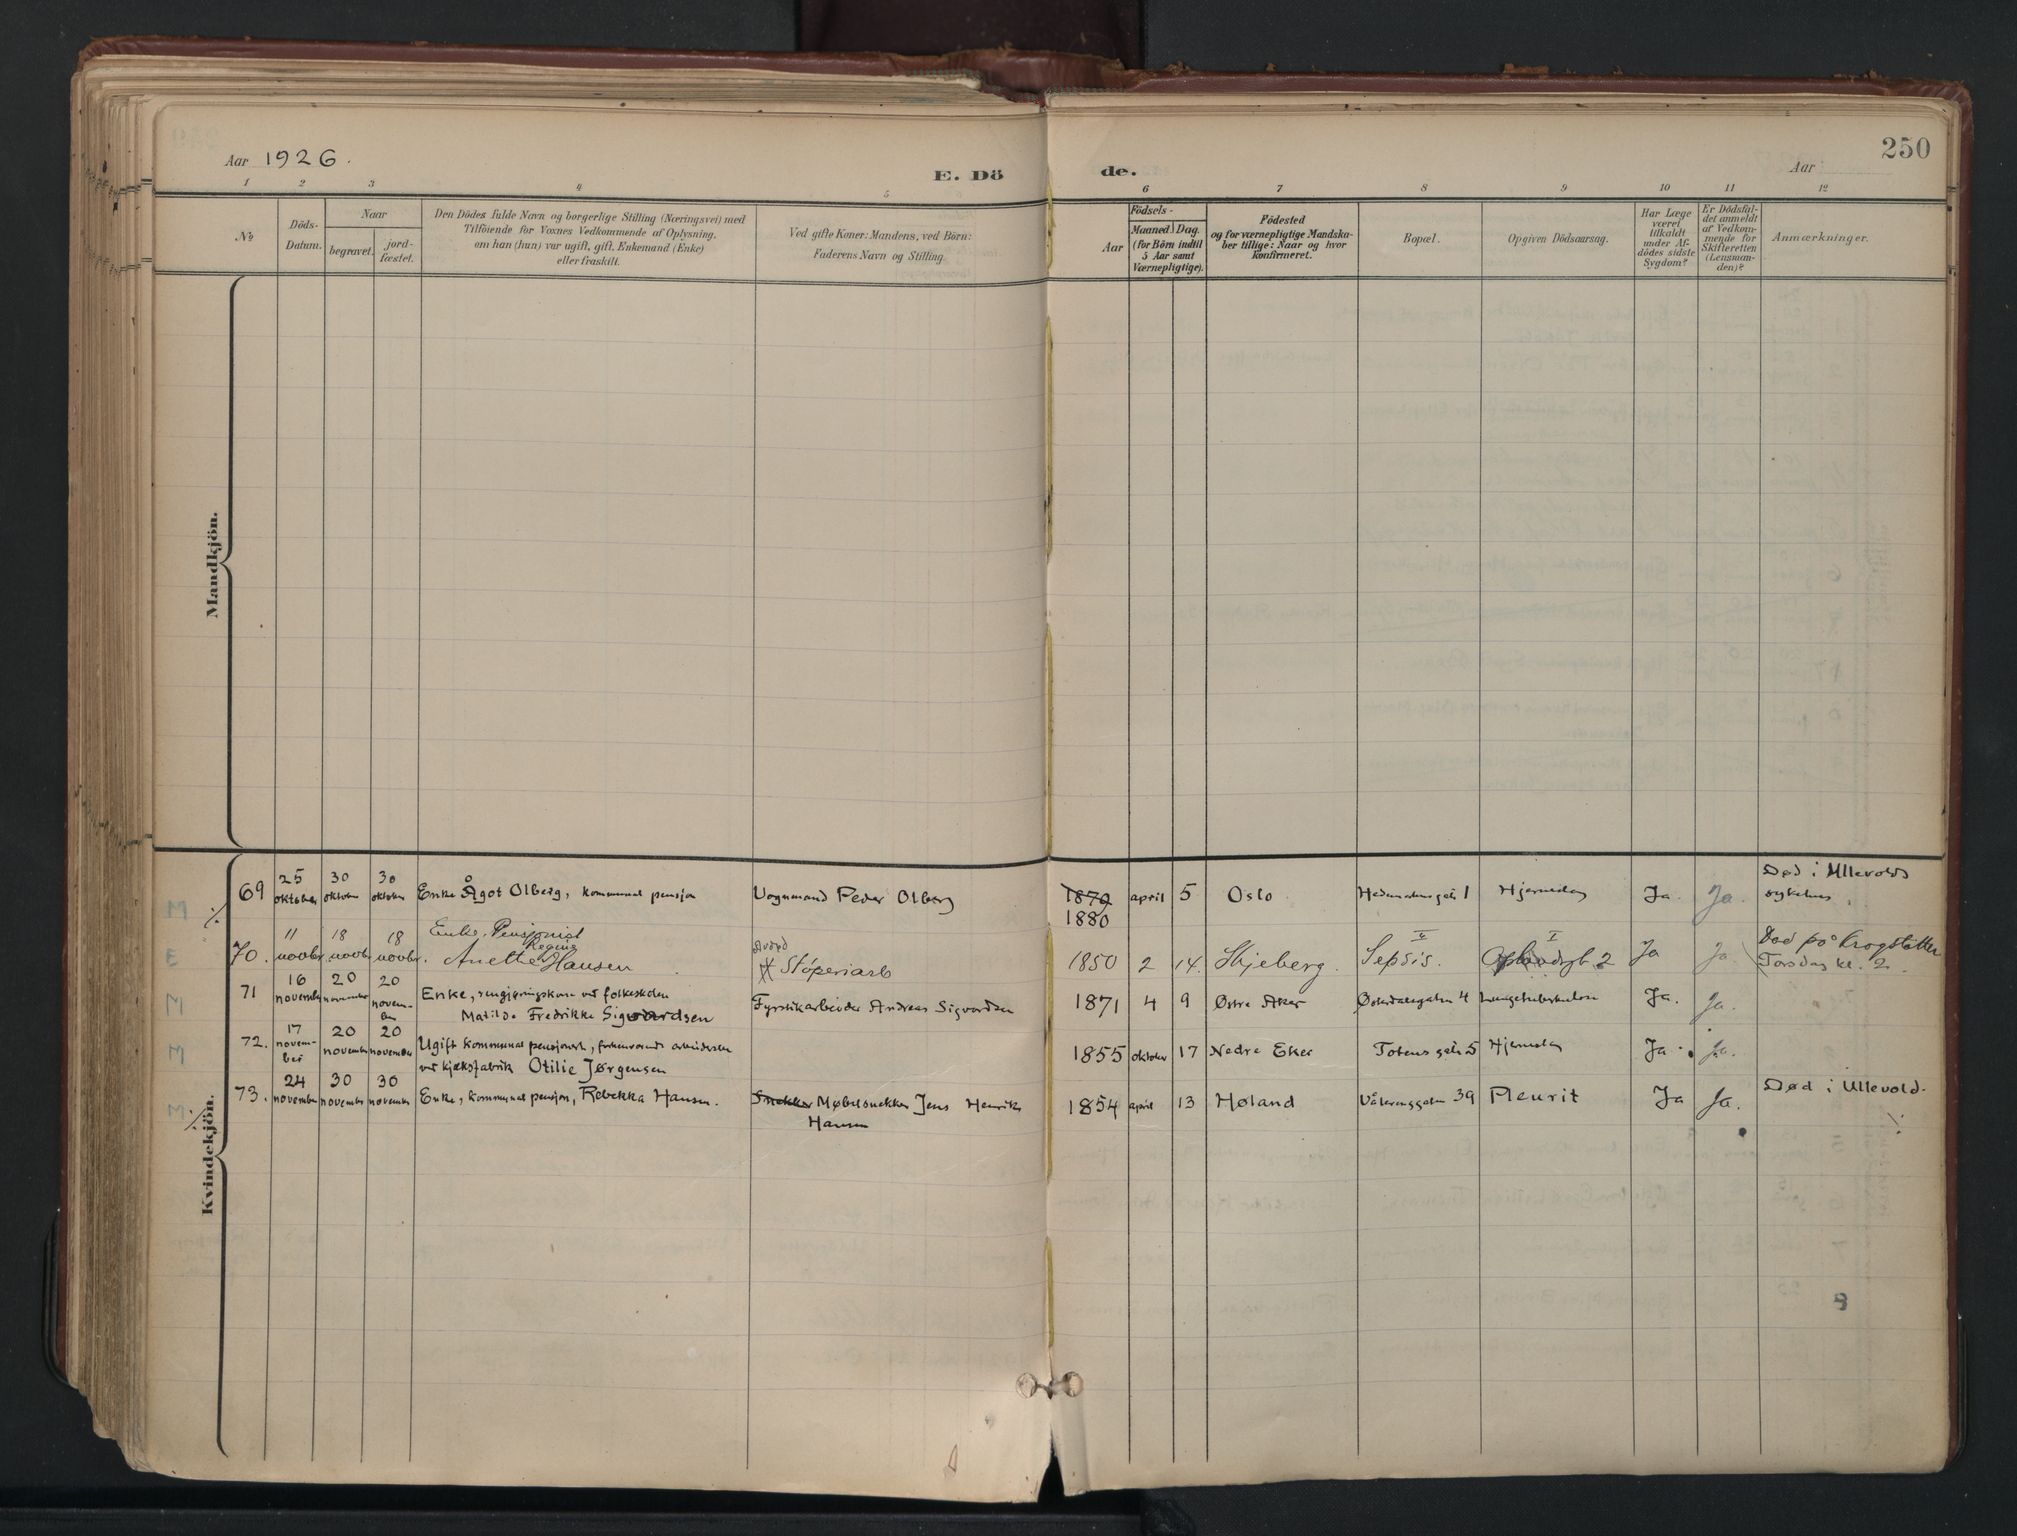 Aar 1926.
E. Döde.
Aar
250
1 2 3 4 5 6 7 8 9 10 11 12
№
Döds-Datum.
Naar
begravet.
jord-fæstet.
Den Dödes fulde Navn og borgerlige Stilling (Næringsvei) med
Tilföiende for Voxnes Vedkommende af Oplysning,
om han (hun) var ugift, gift, Enkemand (Enke)
eller fraskilt.
Ved gifte Koner: Mandens, ved Börn:
Faderens Navn og Stilling.
Aar
Födsels-
Maaned Dag.
(for Börn indtil
5 Aar samt
Værnepligtige).
Födested
og for værnepligtige Mandska-
ber tillige: Naar og hvor
konfirmeret.
Bopæl.
Opgiven Dödsaarsag.
Har Læge
været
tilkaldt
under Af-
dödes sidste
Sygdom?
Er Dödsfal-
det anmeldt
af Vedkom-
mende for
Skifteretten
(Lensman-
den)?
Anmærkninger.
Mandkjön.
Kvindekjön.
69 25 oktober 30 oktober 30 oktober Enke Ågot Olberg, kommunal pensjon Vognmand Peder Olberg 1879 1880 april 5 Oslo Hedemarksgatn 1 Hjerneslag Ja. Ja. Død i Ullevolds
sykehus.
70. 11 novbr. 18 novbr. 18 novbr. Enke, Pensjonist
Anethe Regine Hansen Avdød Støperiarb 1850 2 14. Skjeberg. II Sepsis. I Ja Ja. Død på Krogstøtten
Torsdag kl. 2.
71 16 november 20 november 20 novem-ber Enke, rengjøringskone ved folkeskolen
Matilde Fredrikke Sigvardsen Fyrstikarbeider Andreas Sigvardsen 1871 4 9 Østre Aker Østerdalsgaten 4 Lungetuberkulose Ja. Ja.
72. 17 novem-ber 20 november 20 november Ugift kommunal pensjonist, forhenværende arbeiderske
ved kjæksfabrik Otilie Jørgensen 1855 oktober 17 Nedre Eker Totens gatn 5 Hjerneslag Ja. Ja.
73. 24 november 30 november 30 november Enke, kommunal pensjon, Rebekka Hansen. Snekker Møbelsnekker Jens Henrik
Hansen 1854 april 13 Høland Vålerenggatn 39 Pleurit Ja Ja. Død i Ullevold.